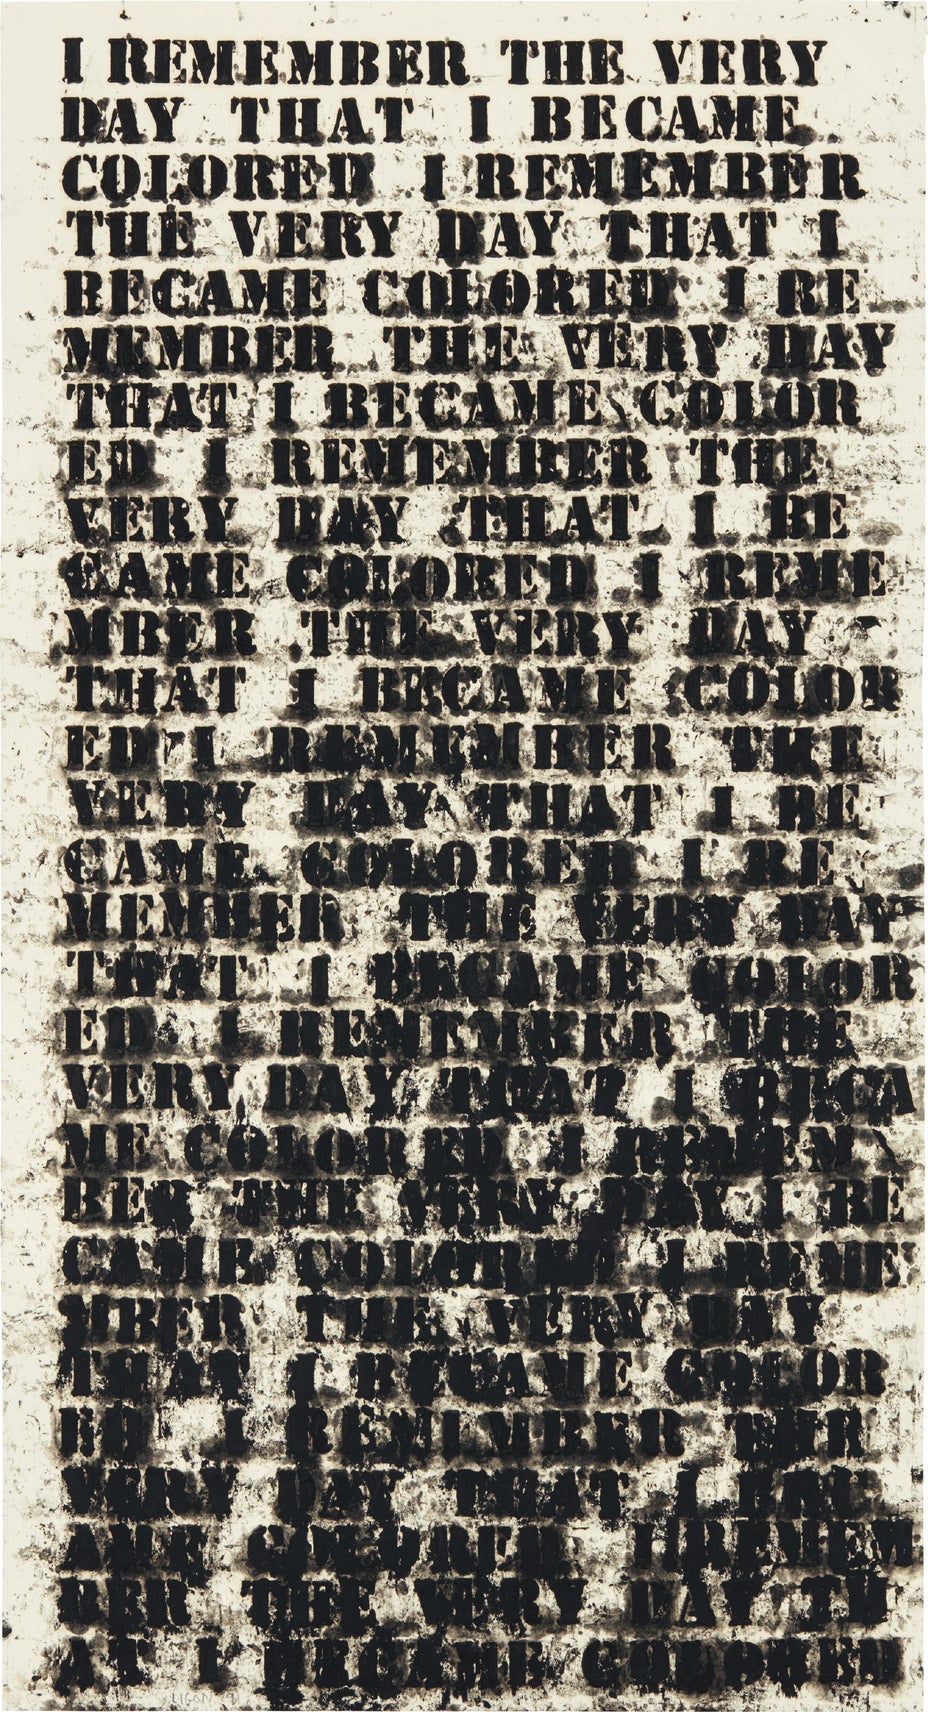 I REMEMBER THE VERY
DAY THAT I BECAME
COLORED I REMEMBER
THE VERY DAY THAT I
BECAME COLORED I RE
MEMBER THE VERY DAY
THAT I BECAME COLOR
ED I REMEMBER THE
VERY DAY THAT I BE
CAME COLORED I REME
MBER THE VERY DAY
THAT I BECAME COLOR
ED I REMEMBER THE
VERY DAY THAT I BE
CAME COLORED I RE
MEMBER THE VERY DAY
THAT I BECAME COLOR
ED I REMEMBER THE
VERY DAY THAT I BECA
ME COLORED I REMEM
BER THE VERY DAY I BE
CAME COLORED I REME
MBER THE VERY DAY
THAT I BECAME COLOR
ED I REMEMBER THE
VERY DAY THAT I BEC
AME COLORED I REMEM
BER THE VERY DAY TH
AT I BECAME COLORED
LIGON